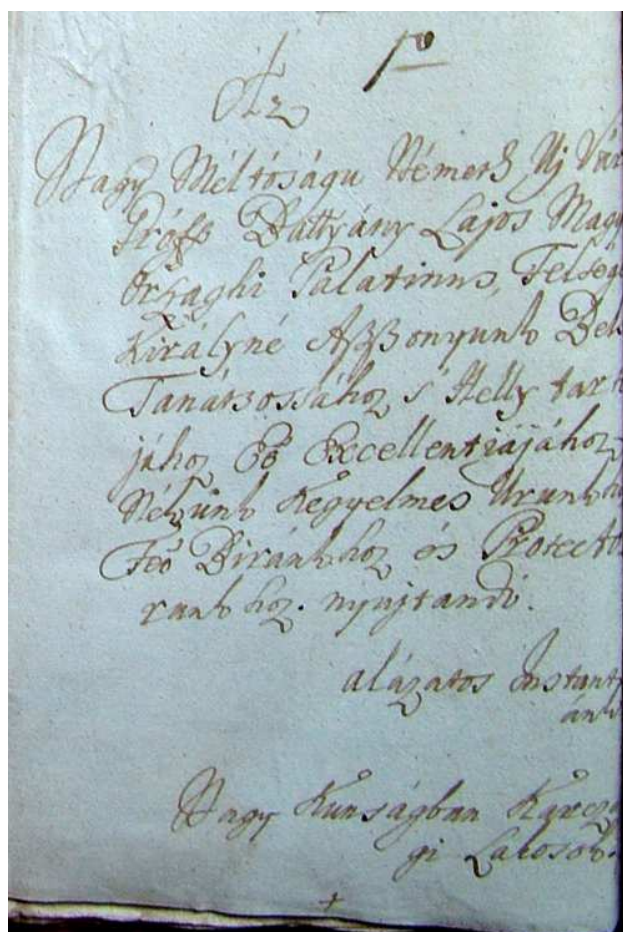 1º
Az
Nagy Méltóságu Németh Uj Vár
Gróff Battyány Lajos Magy
Országhi Palatinus, Felség
Királyné Aszszonyunk Bel
Tanátsossához s' Helly tart
jához Eő Excellentiájához
Nékünk Kegyelmes Urunkh
Feő Biránkhoz és Protecto
runkhoz. nyujtandó.
alázatos Instant
ánk
Nagy Kunságban Karcza
gi Lakosok.